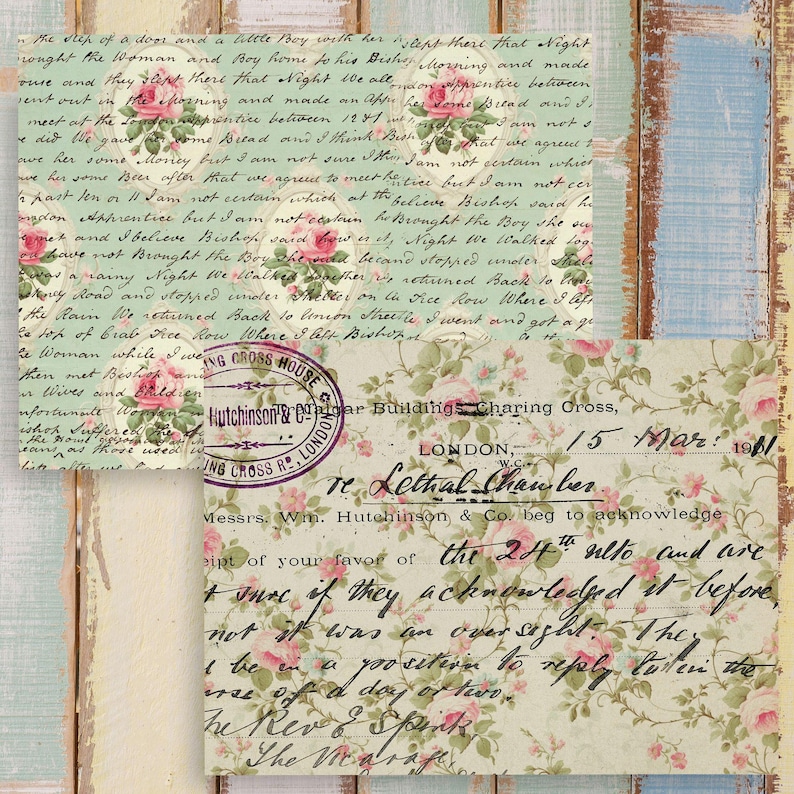 in the step of a door and a little Boy with her h
rought the Woman and Boy home to his Bishop
ouse and they slept there that Night We all
ent out in the Morning and made an App
meet at the London Apprentice between 12 & 1
e did We gave her some Bread and I think Bis
ave her some Money but I am not sure I th
ave her some Beer after that we agreed to meet he
r past ten or 11 I am not certain which at th
ondon Apprentice but I am not certain he
met and I believe Bishop said how is it,
ou have not Brought the Boy she said be
was a rainy Night We Walked together
ckney Road and stopped under Shelter on
the Rain We returned Back to Union Stre
ps of Crab Tree Row Where I left Bishop
e Woman while I we
hen met Bishop and
ur Wives and Children
nfortunate Woman
ishop Suffered the
ears, as those used w
slept there that Night
Morning and made an
ondon Apprentice between
her some Bread and I
I am not s
after that we agreed t
I am not certain which
ve said her some
Brought the Boy she su
Night We Walked tog
and stopped under She
is returned Back to
Tree Row Where I
I went and got a g
Where I left Bishop
ING CROSS HOUSE
Hutchinson & Co.
ING CROSS RD., LONDON
Trafalgar Buildings, Charing Cross,
LONDON, W.C. 15 Mar: 1911
re Lethal Chamber
Messrs. Wm. Hutchinson & Co. beg to acknowledge
eipt of your favor of the 24th ulto and are
t sure if they acknowledged it before,
not it was an oversight. The
l be in a position to reply in the
rse of a day or two.
he Rev E Spink
The Vicarage,